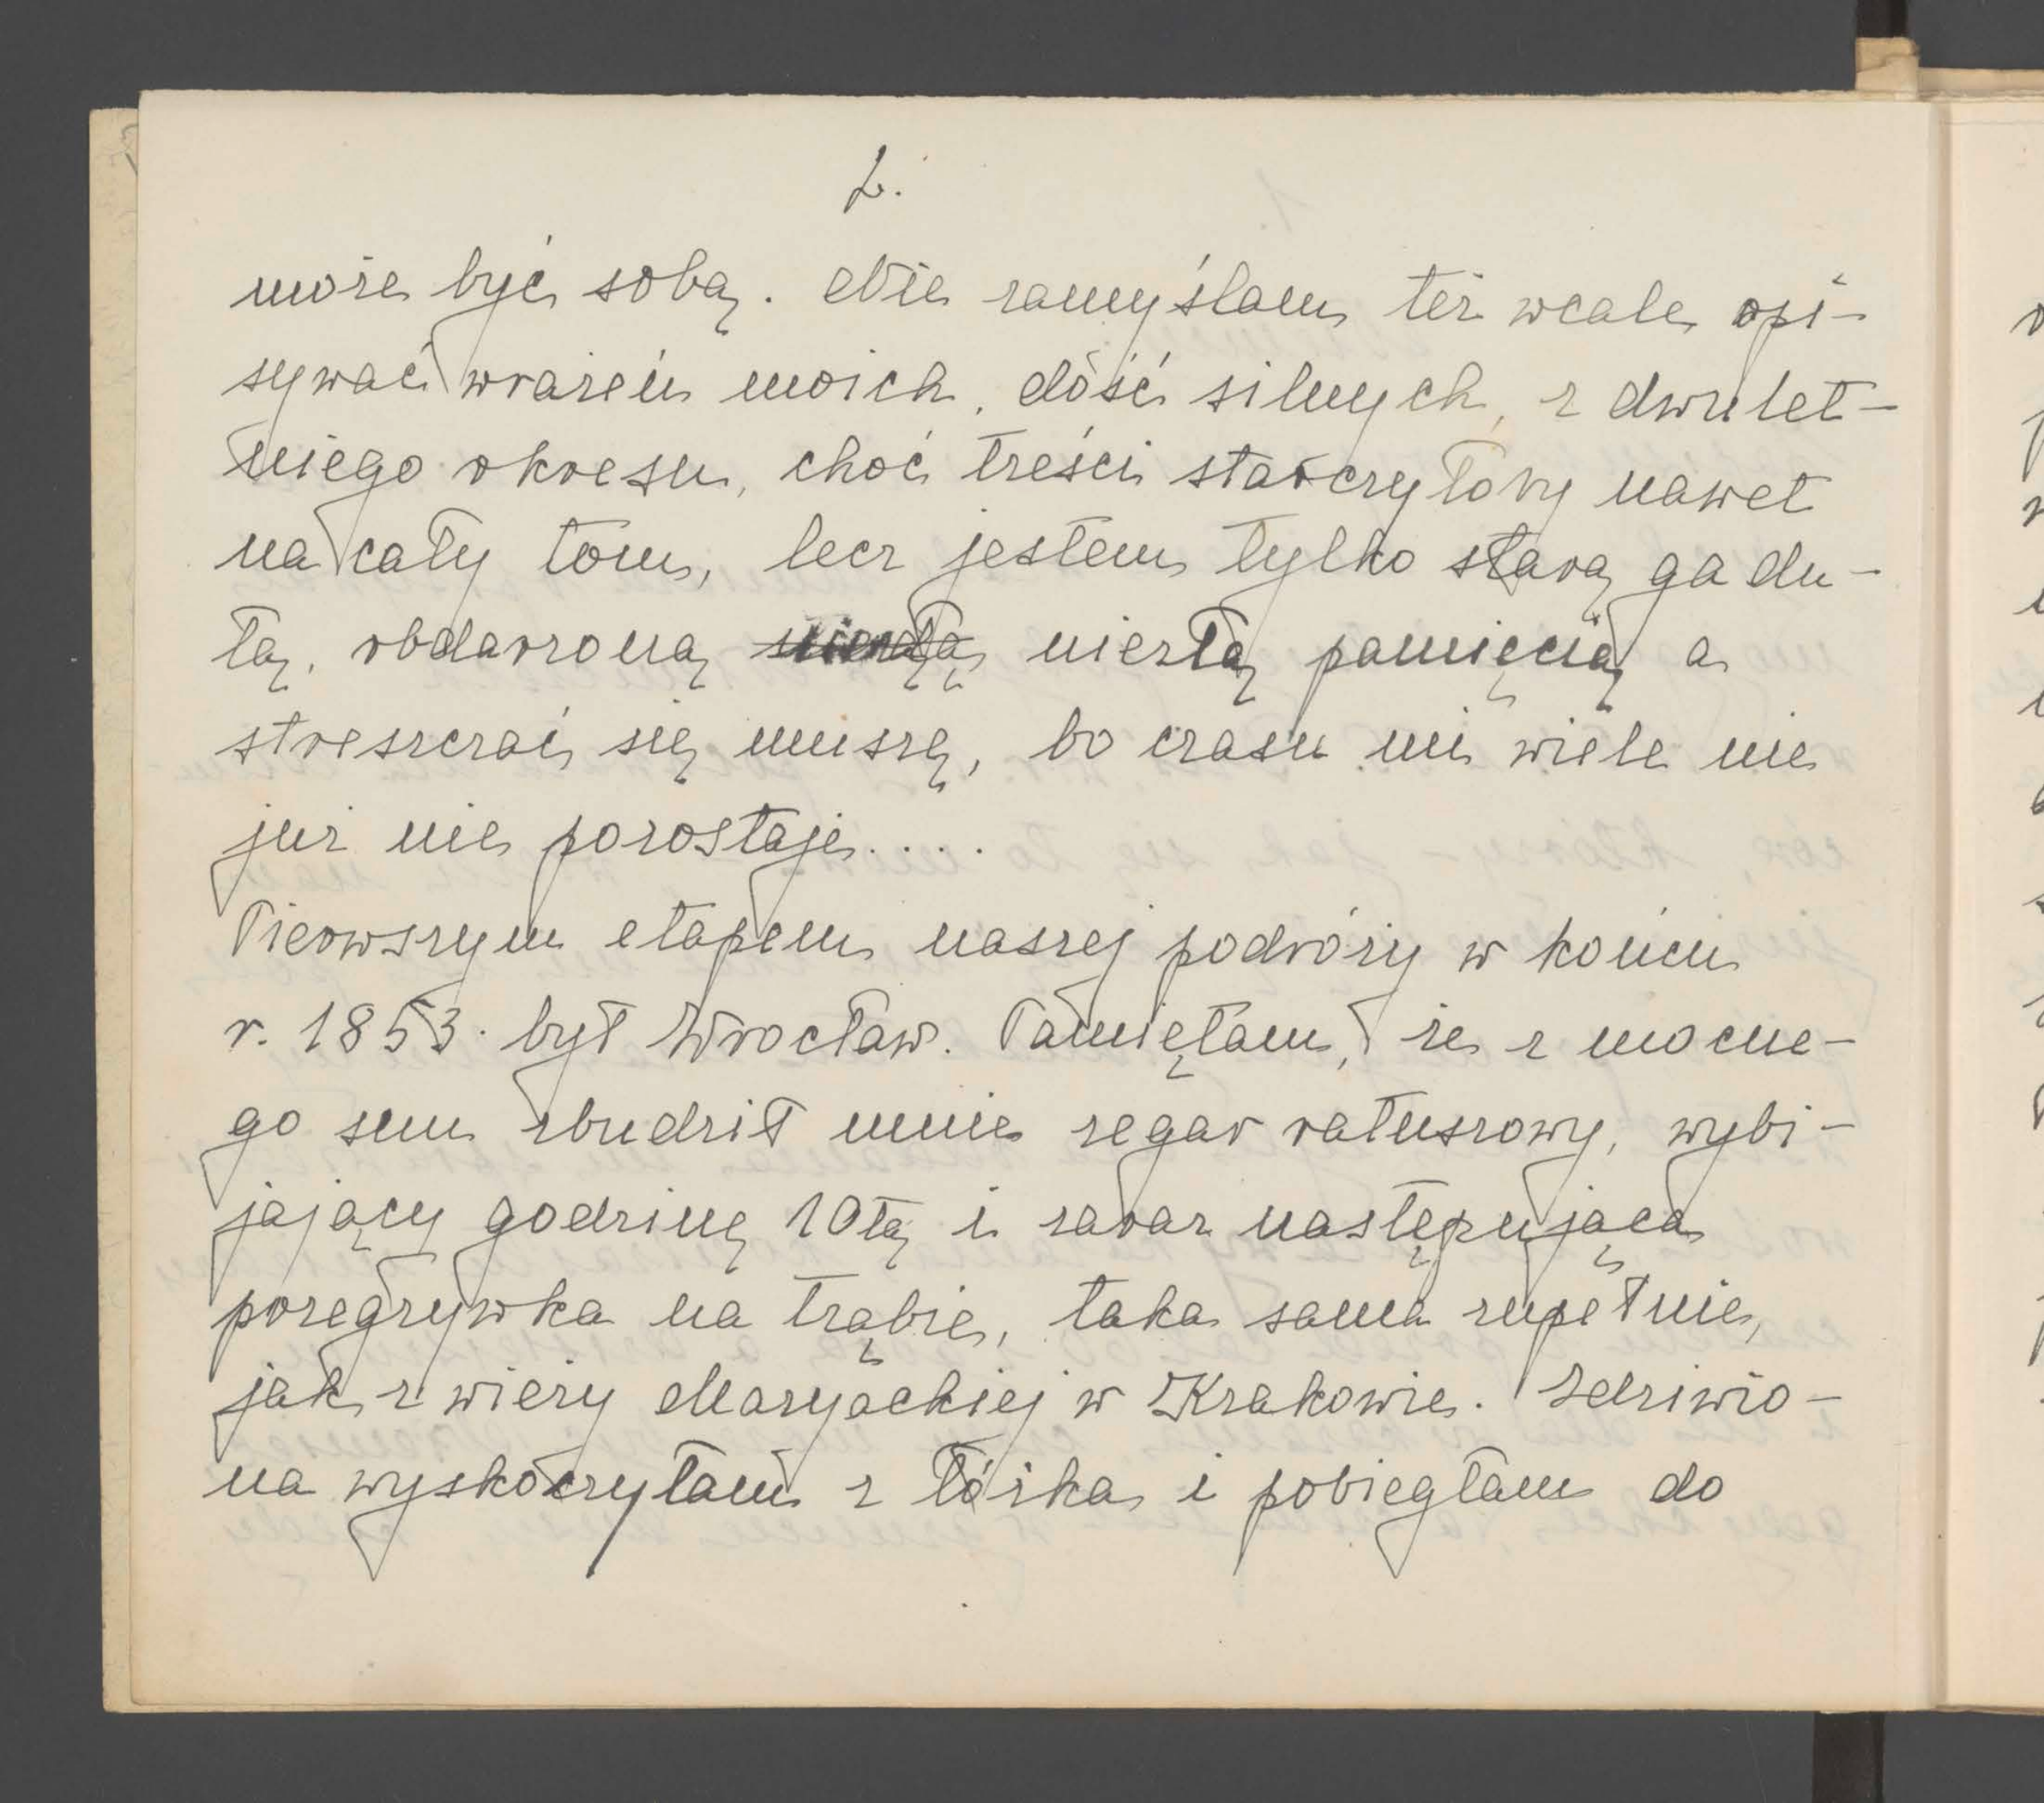 2.
może być sobą. Nie zamyślam też wcale opi-
sywać wrażeń moich, dość silnych, z dwulet-
niego okresu, choć treści starczyłoby nawet
na cały tom, lecz jestem tylko starą gadu-
łą, obdarzoną niezłą pamięcią a
streszczać się muszę, bo czasu mi wiele nie
już nie pozostaje....
Pierwszym etapem naszej podróży w końcu
r. 1853. był Wrocław. Pamiętam, że z mocne-
go snu zbudził mnie zegar ratuszowy, wybi-
jający godzinę 10tą i zaraz następująca
poregrywka na trąbie, taka sama zupełnie,
jak z wieży Maryackiej w Krakowie. Zdziwio-
na wyskoczyłam z łóżka i pobiegłam do